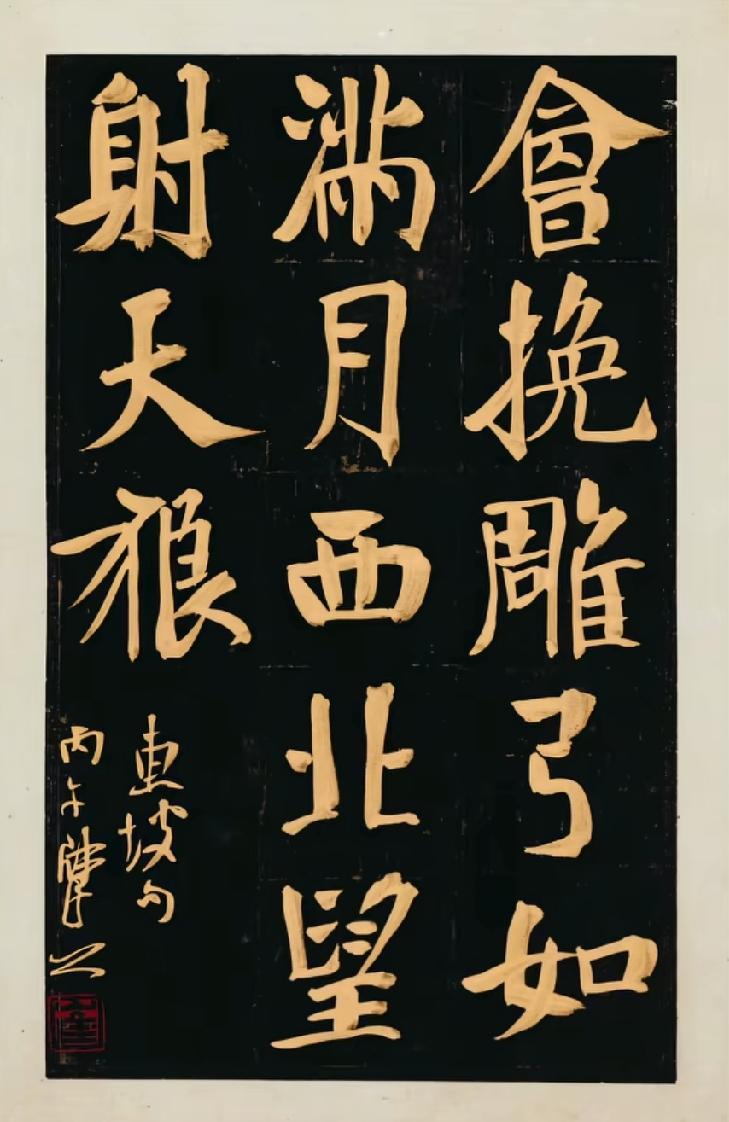 會挽雕弓如
滿月西北望
射天狼
東坡句
丙午